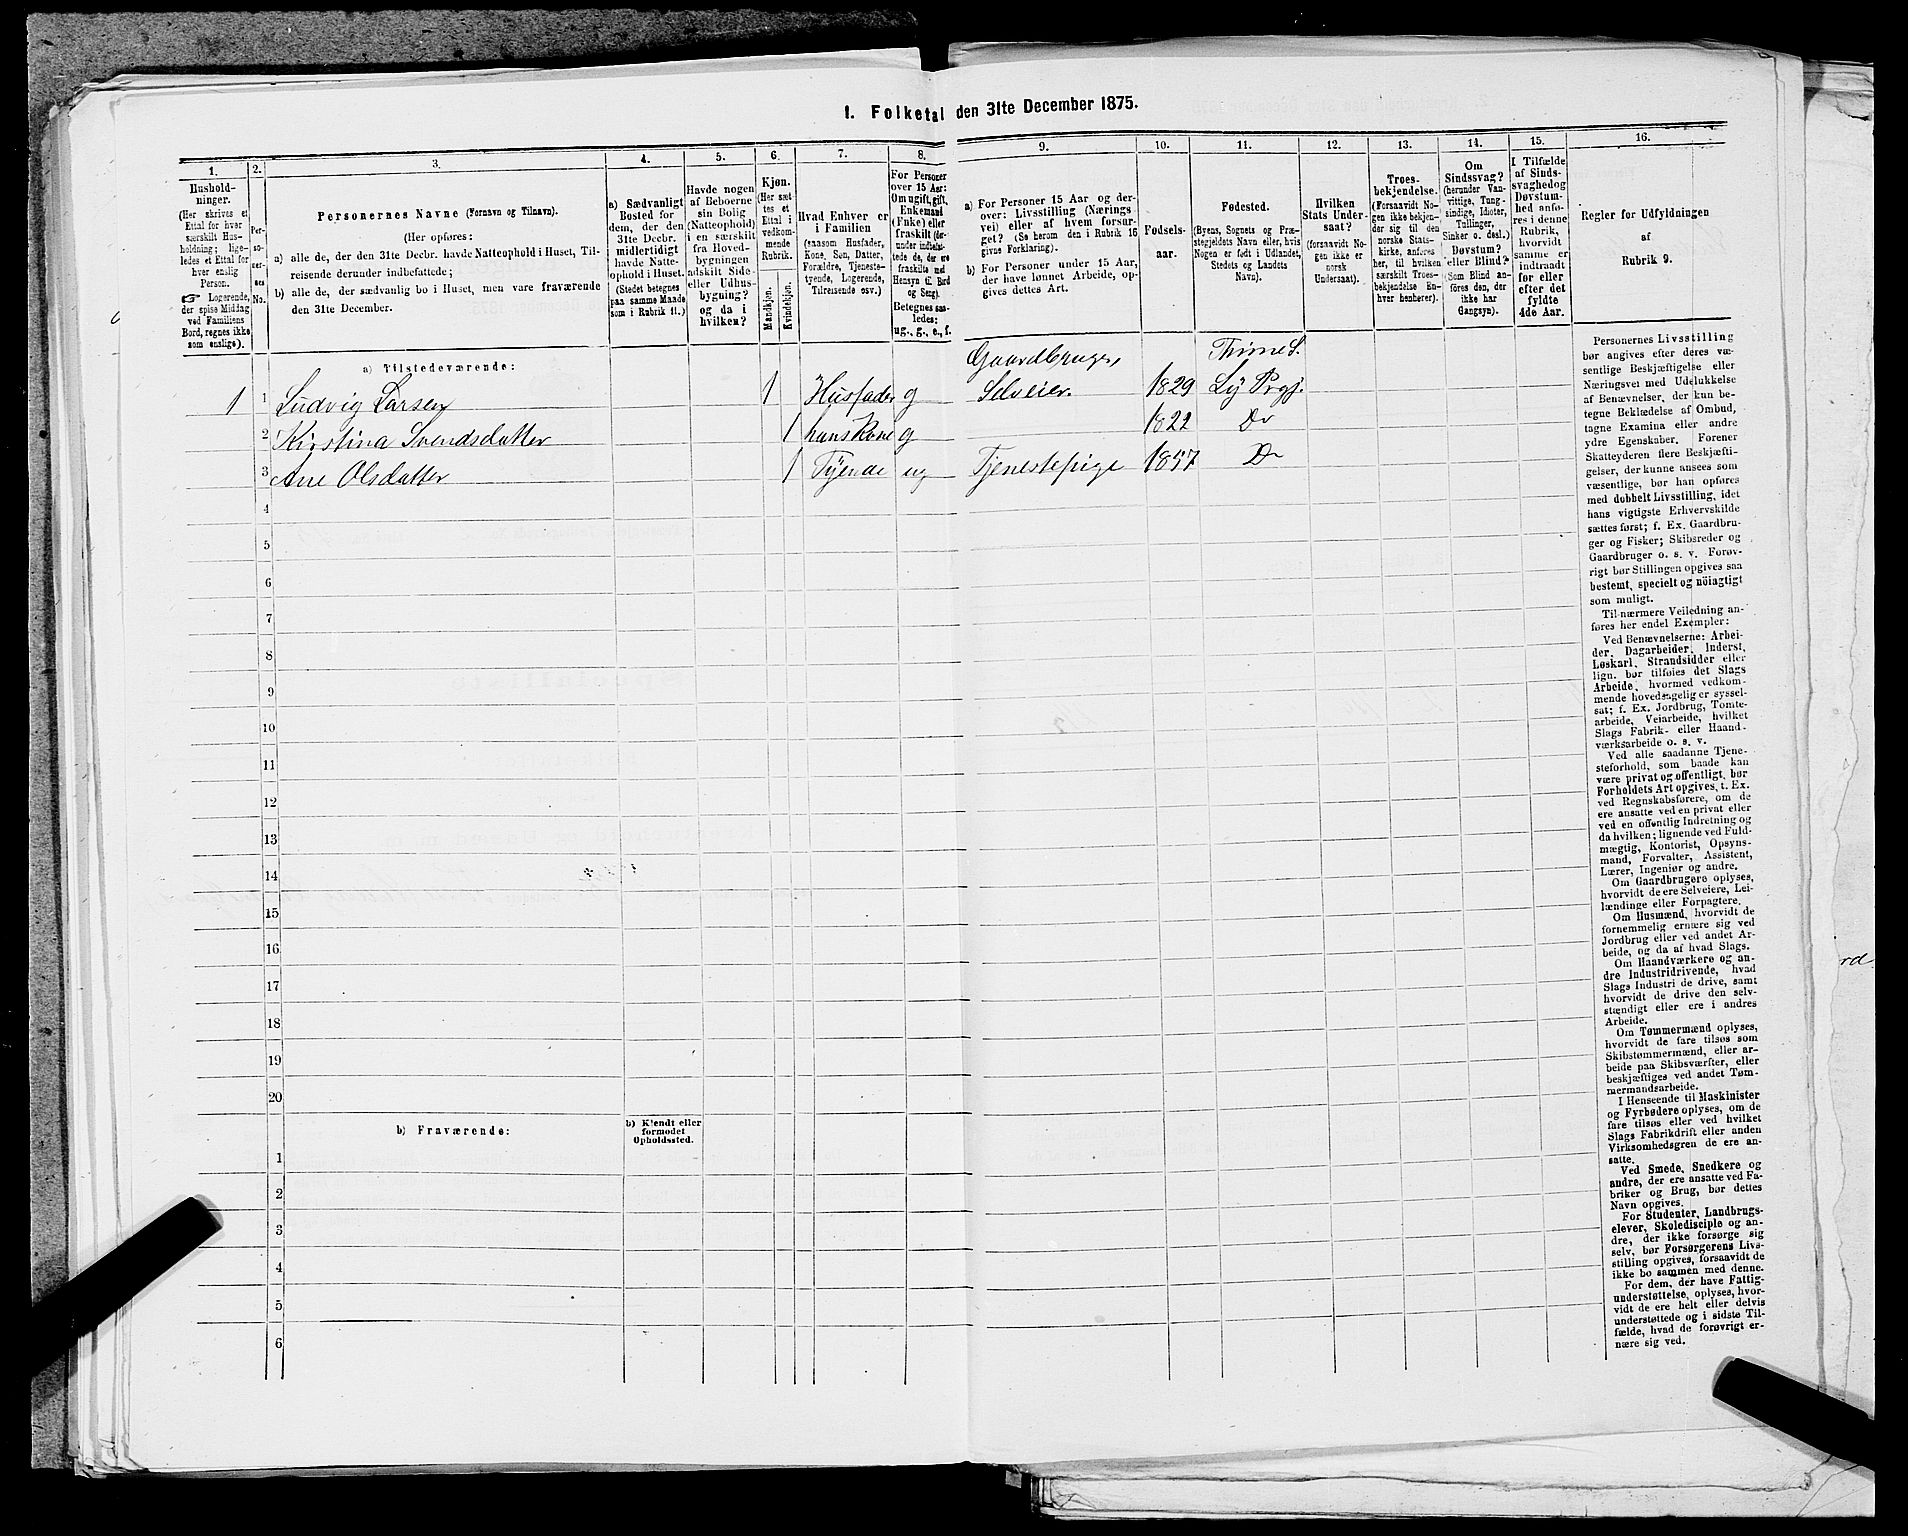 I. Folketal den 31te December 1875.
1.
2.
3.
4.
5.
6.
7.
8.
9.
10.
11.
12.
13.
14.
15.
16.
Hushold-
ninger.
(Her skrives et
Ettal for hver
særskilt Hus-
holdning; lige-
ledes et Ettal for
hver enslig
Person.
☞ Logerende,
der spise Middag
ved Familiens
Bord, regnes ikke
som enslige).
Per-
so-
ner-
nes
No.
Personernes Navne (Fornavn og Tilnavn).
(Her opføres:
a) alle de, der den 31te Decbr. havde Natteophold i Huset, Til-
reisende derunder indbefattede;
b) alle de, der sædvanlig bo i Huset, men vare fraværende
den 31te December.
a) Sædvanligt
Bosted for
dem, der den
31te Decbr.
midlertidigt
havde Natte-
ophold i Huset.
(Stedet betegnes
paa samme Maade
som i Rubrik 11.)
Havde nogen
af Beboerne
sin Bolig
(Natteophold)
i en særskilt
fra Hoved-
bygningen
adskilt Side-
eller Udhus-
bygning?
og da i
hvilken?
Kjøn.
(Her sæt-
tes et
Ettal i
vedkom-
mende
Rubrik.
Mandkjøn.
Kvindekjøn.
Hvad Enhver er
i Familien
(saasom Husfader,
Kone, Søn, Datter,
Forældre, Tjeneste-
tyende, Logerende,
Tilreisende osv.)
For Personer
over 15 Aar:
Om ugift, gift,
Enkemand
(Enke) eller
fraskilt (der-
under indbefat-
tede de, der ere
fraskilte med
Hensyn til Bord
og Seng).
Betegnes saa-
ledes:
ug., g., e., f.
a) For Personer 15 Aar og der-
over: Livsstilling (Nærings
vei) eller af hvem forsør-
get? (Se herom den i Rubrik 16
givne Forklaring).
b) For Personer under 15 Aar,
der have lønnet Arbeide, op-
gives dettes Art.
Fødsels-
aar.
Fødested.
(Byens, Sognets og Præ-
stegjeldets Navn eller, hvis
Nogen er født i Udlandet,
Stedets og Landets
Navn).
Hvilken
Stats Under-
saat?
(forsaavidt No-
gen ikke er
norsk
Undersaat).
Troes-
bekjendelse.
(Forsaavidt No-
gen ikke bekjen-
der sig til den
norske Stats-
kirke, anføres
her, til hvilken
særskilt Troes-
bekjendelse En-
hver henhører).
Om
Sindssvag?
(herunder Van-
vittige, Tung-
sindige, Idioter,
Tullinger,
Sinker o. desl.)
Døvstum?
eller Blind?
(Som Blind an-
føres den, der
ikke har
Gangsyn).
I Tilfælde
af Sinds-
svaghed og
Døvstum-
hed anfø-
res i denne
Rubrik,
hvorvidt
samme er
indtraadt
før eller
efter det
fyldte
4de Aar.
Regler for Udfyldningen
af
Rubrik 9.
a) Tilstedeværende:
1 1 Ludvig Larsen 1 Husfader g Gaardbruger, Selveier. 1829 Thime S. Lÿ Prgj.
2 Kirstina Svendsdatter 1 hans Kone g 1822 Do
3 Ane Olsdatter 1 Tÿende ug Tjenestepige 1857 Do
4
5
6
7
8
9
10
11
12
13
14
15
16
17
18
19
20
b) Fraværende:
b) Kjendt eller
formodet
Opholdssted.
1
2
3
4
5
6
Personernes Livsstilling
bør angives efter deres væ-
sentlige Beskjæftigelse eller
Næringsvei med Udelukkelse
af Benævnelser, der kun be-
tegne Beklædelse af Ombud,
tagne Examina eller andre
ydre Egenskaber. Forener
Skatteyderen flere Beskjæfti-
gelser, der kunne ansees som
væsentlige, bør han opføres
med dobbelt Livsstilling, idet
hans vigtigste Erhvervskilde
sættes først; f. Ex. Gaardbru-
ger og Fisker; Skibsreder og
Gaardbruger o. s. v. Forøv-
rigt bør Stillingen opgives saa
bestemt, specielt og nöiagtigt
som muligt.
Til nærmere Veiledning an-
føres her endel Exempler:
Ved Benævnelserne: Arbei-
der, Dagarbeider, Inderst,
Løskarl, Strandsidder eller
lign. bør tilføies det Slags
Arbeide, hvormed vedkom-
mende hovedsagelig er syssel-
sat; f. Ex. Jordbrug, Tomte-
arbeide, Veiarbeide, hvilket
Slags Fabrik- eller Haand-
værksarbeide o. s. v.
Ved alle saadanne Tjene-
steforhold, som baade kan
være privat og offentligt, bør
Forholdets Art opgives, t. Ex.
ved Regnskabsførere, om de
ere ansatte ved en privat eller
ved en offentlig Indretning og
da hvilken; lignende ved Fuld-
mægtig, Kontorist, Opsyns-
mand, Forvalter, Assistent,
Lærer, Ingeniør og andre.
Om Gaardbrugere oplyses,
hvorvidt de ere Selveiere, Lei-
lændinge eller Forpagtere.
Om Husmænd, hvorvidt de
fornemmelig ernære sig ved
Jordbrug eller ved andet Ar-
beide, og da af hvad Slags.
Om Haandværkere og an-
dre Industridrivende, hvad
Slags Industri de drive, samt
hvorvidt de drive den selv-
stændigt eller ere i andres
Arbeide.
Om Tømmermænd oplyses,
hvorvidt de fare tilsøs som
Skibstømmermænd, eller ar-
beide paa Skibsværfter, eller
beskjæftiges ved andet Tøm-
mermandsarbeide.
I Henseende til Maskinister
og Fyrbødere oplyses, om de
fare tilsøs eller ved hvilket
Slags Fabrikdrift eller anden
Virksomhedsgren de ere an-
satte.
Ved Smede, Snedkere og
andre, der ere ansatte ved Fa-
briker og Brug, bør dettes
Navn opgives.
For Studenter, Landbrugs-
elever, Skoledisciple og an-
dre, der ikke forsørge sig
selv, bør Forsørgerens Livs-
stilling opgives, forsaavidt de
ikke bo sammen med denne.
For dem, der have Fattig-
understøttelse, oplyses, hvor-
vidt de ere helt eller delvis
understøttede og i sidste Til-
fælde, hvad de forøvrigt er-
nære sig ved.
rd